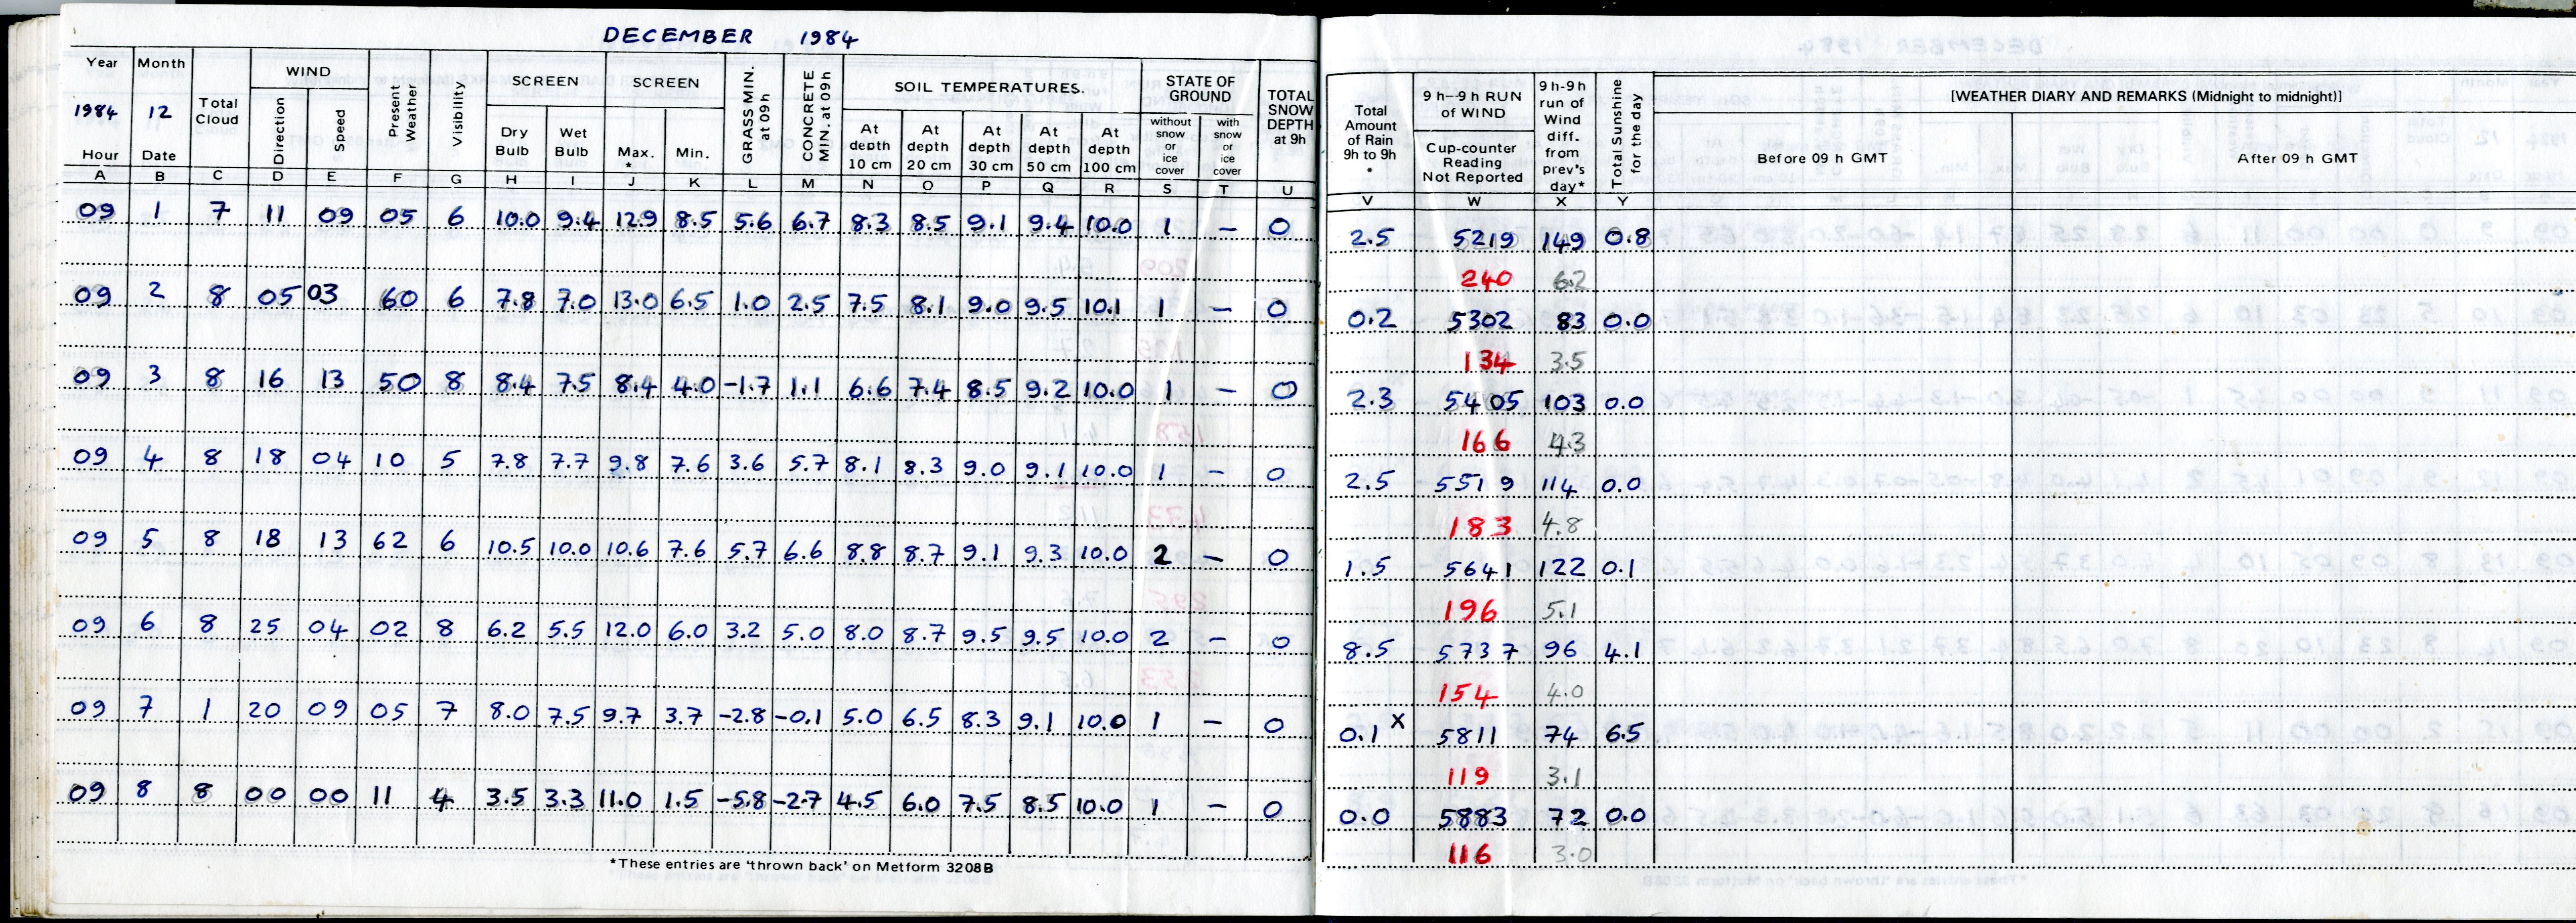 DECEMBER 1984
Year Month WIND SCREEN SCREEN SOIL TEMPERATURES. STATE OF GROUND
1984 12 Total Cloud Direction Speed Present Weather Visibility Dry Bulb Wet Bulb Max. * Min. GRASS MIN. at 09h CONCRETE MIN. at 09h At depth 10 cm At depth 20 cm At depth 30 cm At depth 50 cm At depth 100 cm without snow or ice cover with snow or ice cover TOTAL SNOW DEPTH at 9h
Hour Date
A B C D E F G H I J K L M N O P Q R S T U
09 1 7 11 09 05 6 10.0 9.4 12.9 8.5 5.6 6.7 8.3 8.5 9.1 9.4 10.0 1 — 0
09 2 8 05 03 60 6 7.8 7.0 13.0 6.5 1.0 2.5 7.5 8.1 9.0 9.5 10.1 1 — 0
09 3 8 16 13 50 8 8.4 7.5 8.4 4.0 -1.7 1.1 6.6 7.4 8.5 9.2 10.0 1 — 0
09 4 8 18 04 10 5 7.8 7.7 9.8 7.6 3.6 5.7 8.1 8.3 9.0 9.1 10.0 1 — 0
09 5 8 18 13 62 6 10.5 10.0 10.6 7.6 5.7 6.6 8.8 8.7 9.1 9.3 10.0 2 — 0
09 6 8 25 04 02 8 6.2 5.5 12.0 6.0 3.2 5.0 8.0 8.7 9.5 9.5 10.0 2 — 0
09 7 1 20 09 05 7 8.0 7.5 9.7 3.7 -2.8 -0.1 5.0 6.5 8.3 9.1 10.0 1 — 0
09 8 8 00 00 11 4 3.5 3.3 11.0 1.5 -5.8 -2.7 4.5 6.0 7.5 8.5 10.0 1 — 0
*These entries are 'thrown back' on Metform 3208B
Total Amount of Rain 9h to 9h * 9 h—9 h RUN of WIND Cup-counter Reading Not Reported 9 h-9 h run of Wind diff. from prev's day* Total Sunshine for the day [WEATHER DIARY AND REMARKS (Midnight to midnight)]
Before 09 h GMT After 09 h GMT
V W X Y
2.5 5219 149 0.8
240 6.2
0.2 5302 83 0.0
134 3.5
2.3 5405 103 0.0
166 4.3
2.5 5519 114 0.0
183 4.8
1.5 5641 122 0.1
196 5.1
8.5 5737 96 4.1
154 4.0
0.1 x 5811 74 6.5
119 3.1
0.0 5883 72 0.0
116 3.0